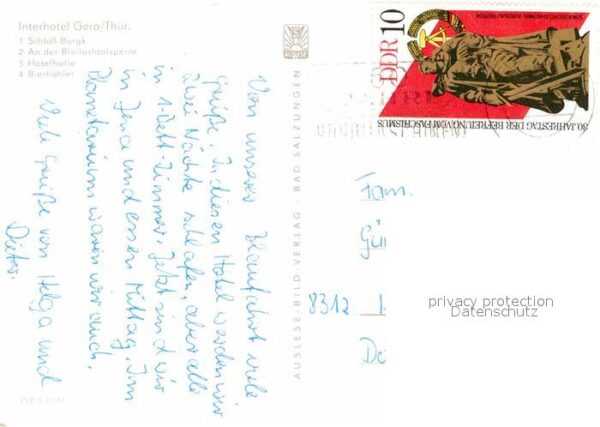 Interhotel Gera/Thür.
1 Schloß Burgk
2 An der Bleilochtalsperre
3 Hotelhalle
4 Bierhöhler
Von unserer Blaufahrt viele
Grüße. In diesem Hotel werden wir
zwei Nächte schlafen, aber alle
in 1-Bett-Zimmer. Jetzt sind wir
in Jena und essen Mittag. Im
Planetarium waren wir auch.
Viele Grüße von Helga und
Dieter.
AUSLESE-BILD-VERLAG · BAD SALZUNGEN
DDR 10
30. JAHRESTAG DER BEFREIUNG VOM FASCHISMUS
Fam.
Gü
8312
privacy protection
Datenschutz
De